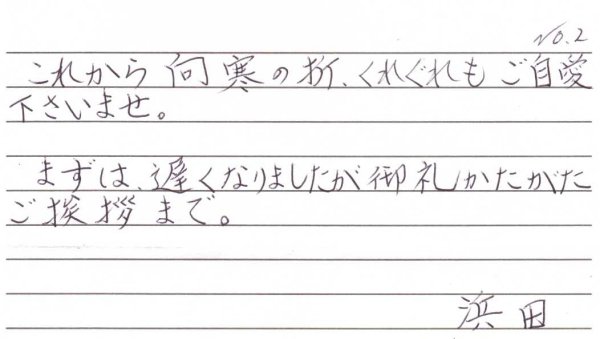 No.2
これから向寒の折、くれぐれもご自愛
下さいませ。
まずは、遅くなりましたが御礼かたがた
ご挨拶まで。
浜田